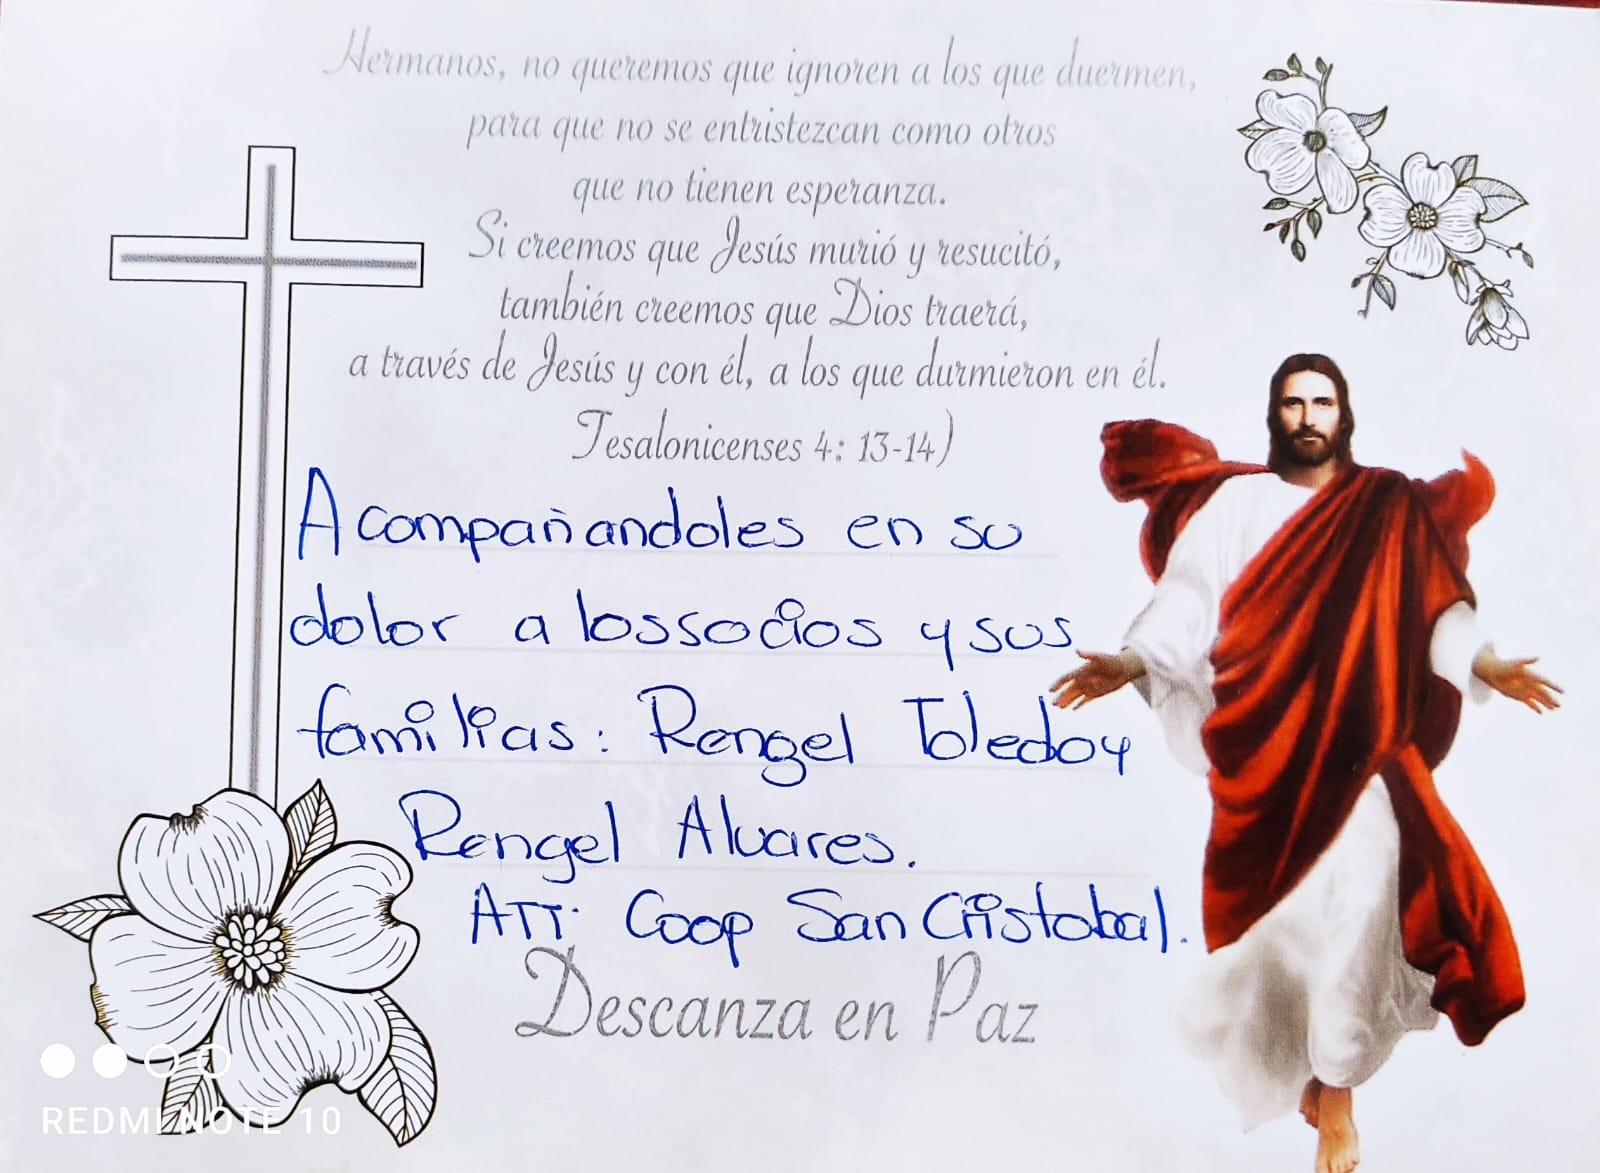 Hermanos, no queremos que ignoren a los que duermen,
para que no se entristezcan como otros
que no tienen esperanza.
Si creemos que Jesús murió y resucitó,
también creemos que Dios traerá,
a través de Jesús y con él, a los que durmieron en él.
Tesalonicenses 4: 13-14)
Acompañandoles en su
dolor a los socios y sus
familias: Rengel Toledo y
Rengel Alvares.
ATT. Coop San Cristobal.
Descanza en Paz
REDMI NOTE 10